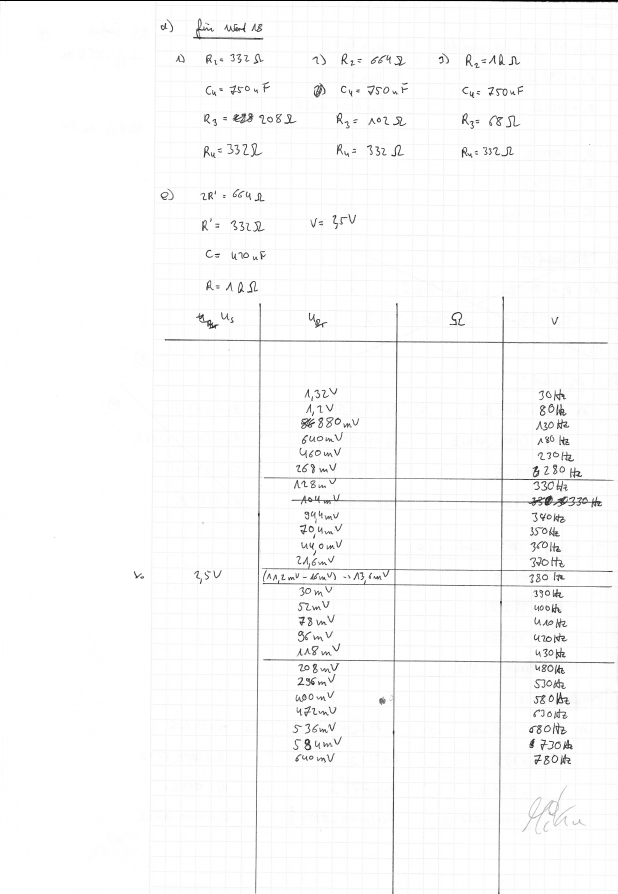 d) für Wert 18
1) R₂ = 332 Ω 2) R₂ = 664 Ω 3) R₂ = 1kΩ
C₄ = 750 nF C₄ = 750 nF C₄ = 750 nF
R₃ = 208 Ω R₃ = 102 Ω R₃ = 68 Ω
R₄ = 332 Ω R₄ = 332 Ω R₄ = 332 Ω
e) 2R' = 664 Ω
R' = 332 Ω V = 3,5V
C = 470 nF
R = 1 kΩ
U_s U_Br Ω ν
1,32V 30 Hz
1,2V 80 Hz
880 mV 130 Hz
640 mV 180 Hz
460 mV 230 Hz
268 mV 280 Hz
128 mV 330 Hz
104 mV 330 Hz
94,4 mV 340 Hz
70,4 mV 350 Hz
44,0 mV 360 Hz
21,6 mV 370 Hz
ν₀ 3,5V (11,2 mV - 16 mV) → 13,6 mV 380 Hz
30 mV 390 Hz
52 mV 400 Hz
78 mV 410 Hz
96 mV 420 Hz
118 mV 430 Hz
208 mV 480 Hz
296 mV 530 Hz
400 mV 580 Hz
472 mV 630 Hz
536 mV 680 Hz
584 mV 730 Hz
640 mV 780 Hz